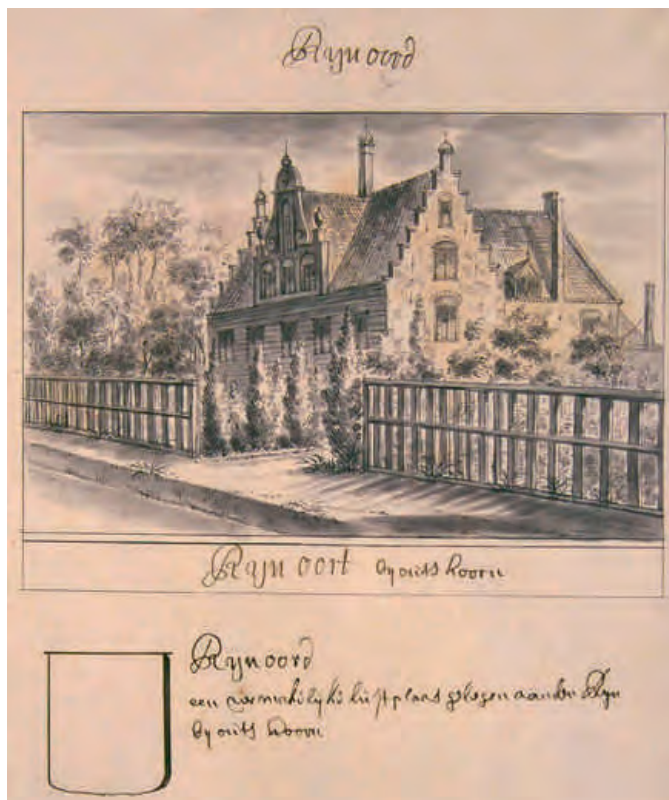 Rynoord
Rynoort by outs hoorn
Rynoord
een vermakelyke lustplaas gelegen aan den Ryn
by outs hoorn